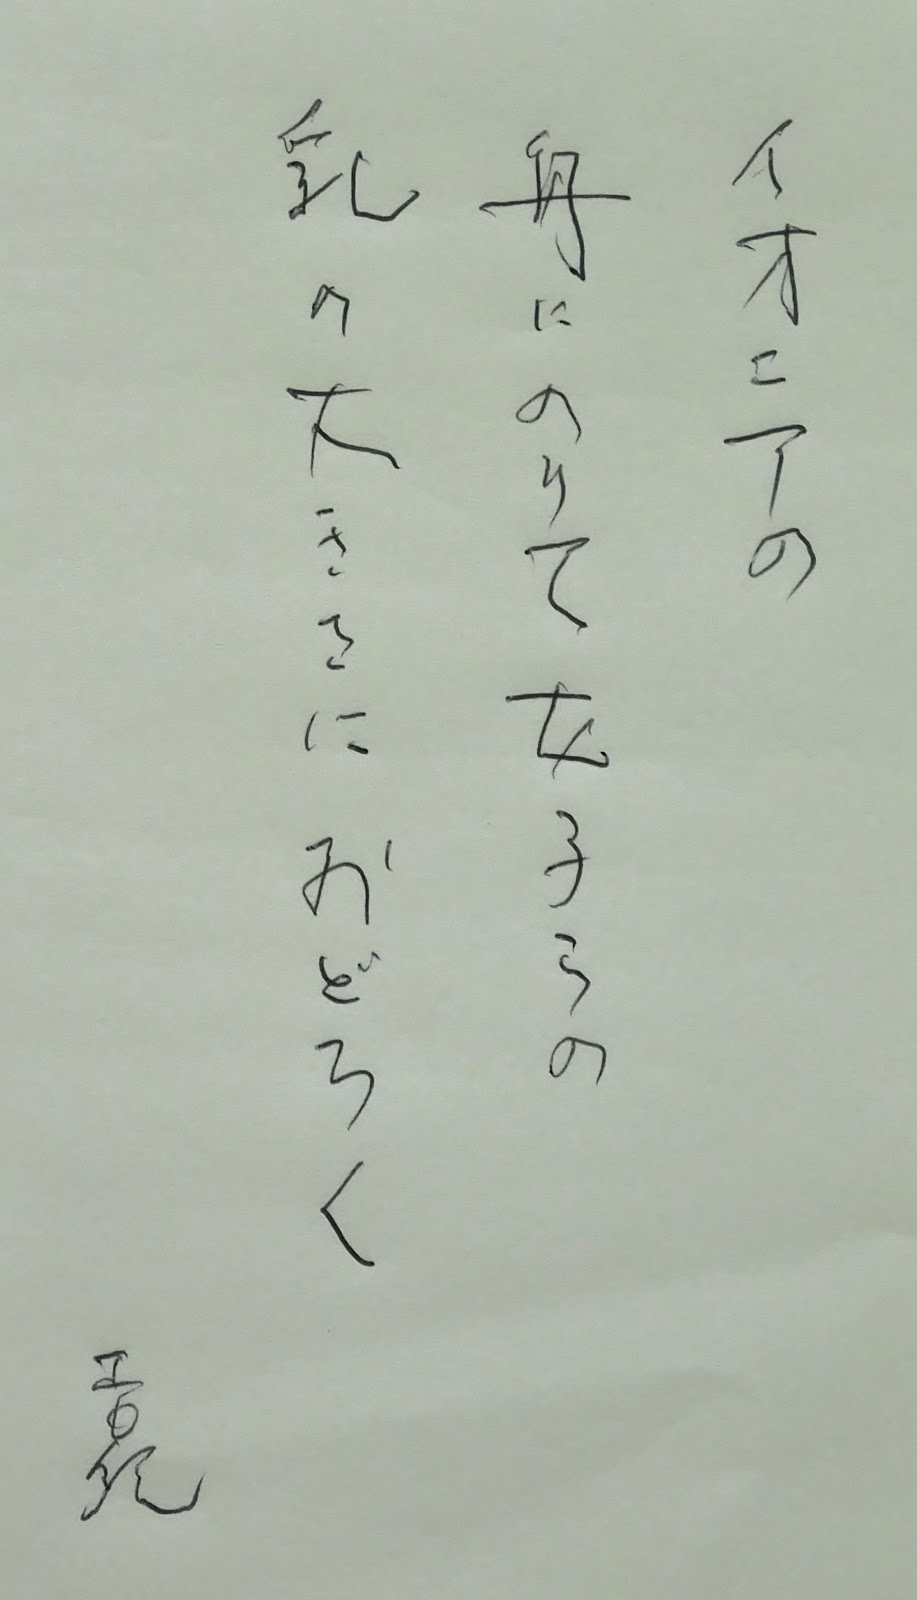 イオニアの
舟にのりて女子らの
乳の大きさに おどろく